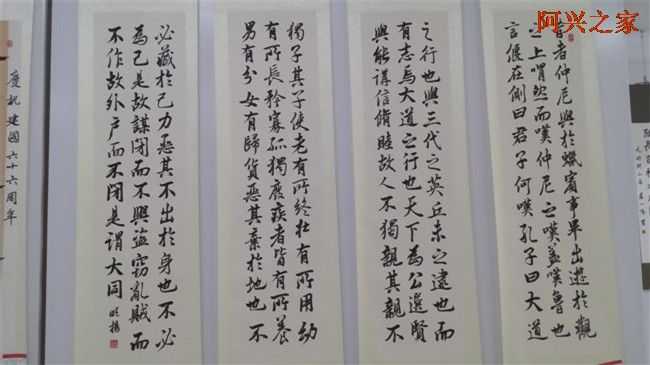 阿兴之家
昔者仲尼與於蠟賓事畢出遊於觀
之上喟然而嘆仲尼之嘆蓋嘆魯也
言偃在側曰君子何嘆孔子曰大道
之行也與三代之英丘未之逮也而
有志焉大道之行也天下為公選賢
與能講信脩睦故人不獨親其親不
獨子其子使老有所終壯有所用幼
有所長矜寡孤獨廢疾者皆有所養
男有分女有歸貨惡其棄於地也不
必藏於己力惡其不出於身也不必
為己是故謀閉而不興盜竊亂賊而
不作故外戶而不閉是謂大同
慶祝建國六十六周年